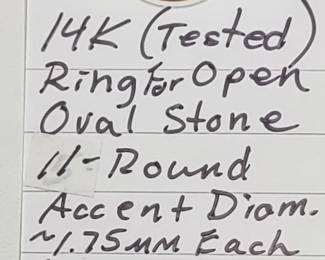 14K (Tested)
Ring for Open
Oval Stone
11-Round
Accent Diam.
~1.75MM Each